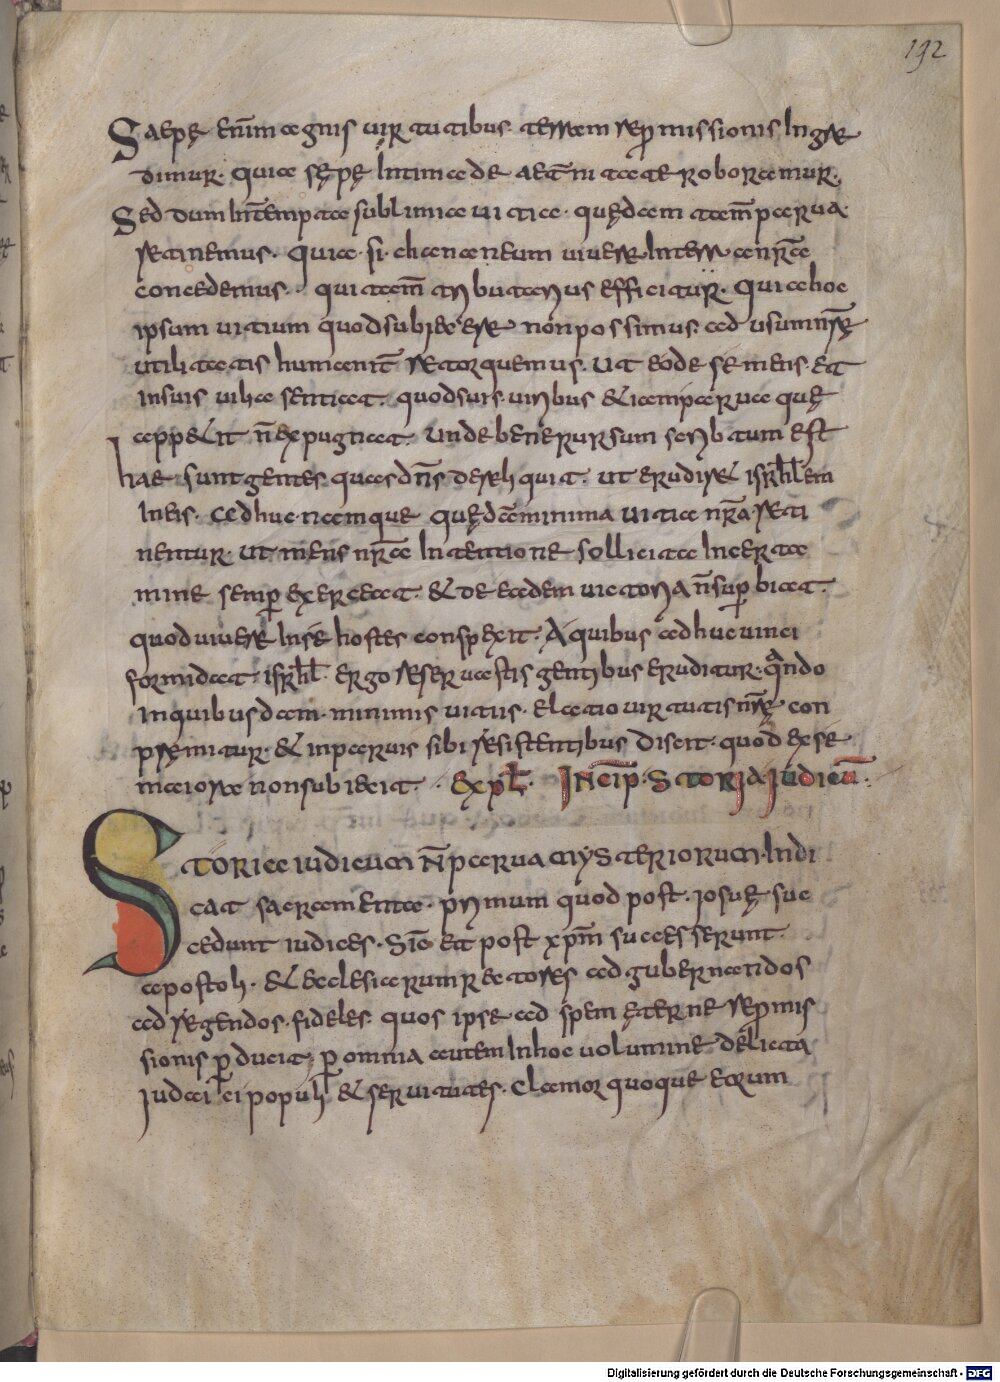 192
Saepę enim magnis virtutibus terram repromissionis Ingre
dimur. quia sępę Intima de aeterni tate roboramur.
Sed dum Intempate sublimia vitia. quędam atem parva
retinemus. quia si chananeum vivere Interra nrā
concedimus. qui tam tributarius efficitur. quia hoc
ipsum vitium quod subicere non possimus ad usum nrę
utilitatis humanit retorquemus. Ut eo de se mens et
In suis vilia sentiat. quod suis viribus & iam parva quę
appetit n̄ expugnat. Unde bene rursum scribtum est
hae sunt gentes quas dn̄s dereliquit. ut erudiret isrhlem
In eis. ad huc namque quędā minima vitia nrā reti
nentur. ut mens nrā In tentione sollicita In certa
mine semper exerceat. & de eadem victoria n̄ superbiat.
quod vivere In se hostes conspexit. A quibus adhuc vinci
formidat. isrhl ergo reservatis gentibus eruditur. qndo
In quibusdam minimis vitiis elatio virtutis nrę con
pręmitur. & in parvis sibi resistentibus discit. quod ex se
maiora non subieit. Expl. Incip Storia Iudicū.
Storia iudicum n̄ parva mysteriorum. Indi
cat sacramenta. primum quod post Josuę suc
cedunt iudices. Sic et post xpm̄ successerunt
apostoli. & aeclesiarum rectores ad gubernandos
ad regendos fideles. quos ipse ad spem ęterne repromis
sionis perducit. per omnia autem In hoc volumine delicta
Judaici popūli & servitutes. Clamor quoque eorum
Digitalisierung gefördert durch die Deutsche Forschungsgemeinschaft - DFG